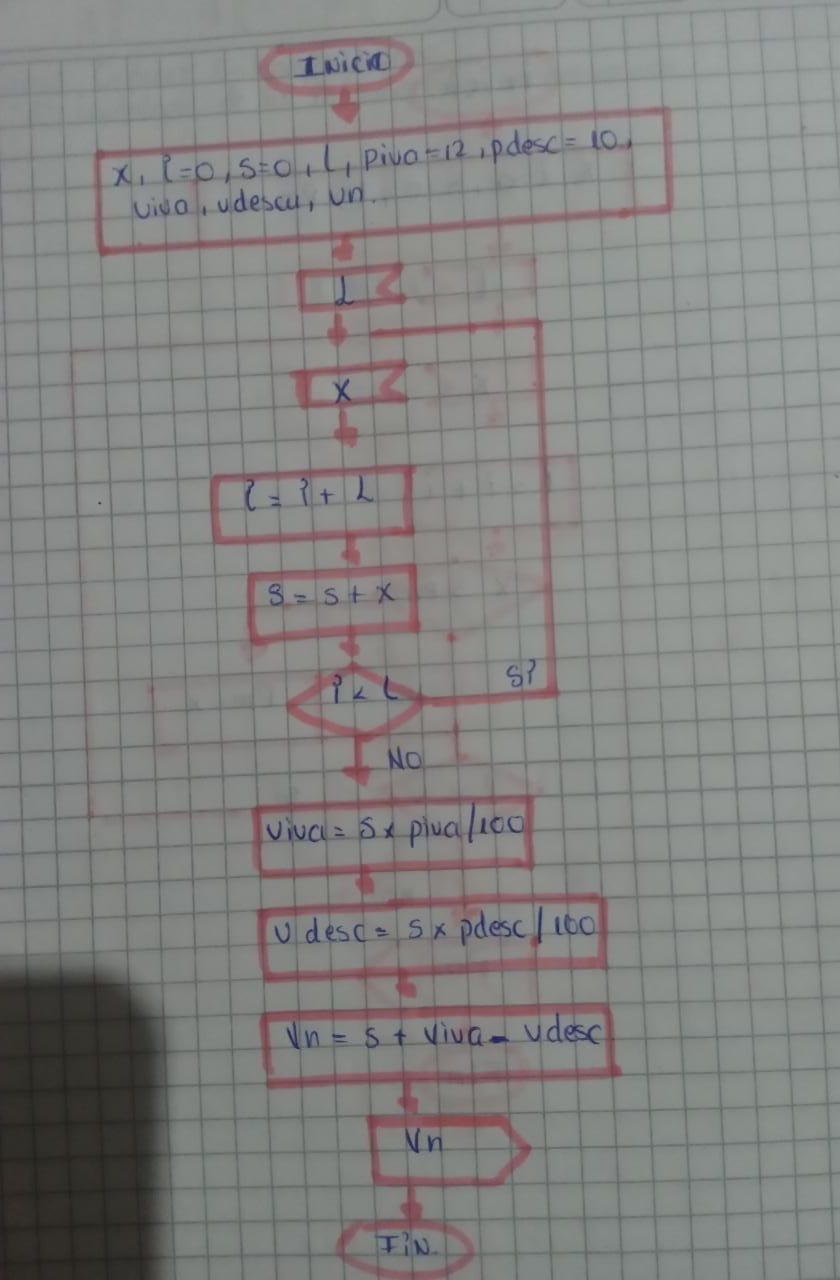 Inicio
x, i=0, s=0, L, piva=12, pdesc=10,
viva, vdescu, vn.
L
x
i = i + L
S = s + x
i < L
Si
NO
viva = s x piva/100
v desc = s x pdesc/100
Vn = s + viva - vdesc
Vn
FiN.